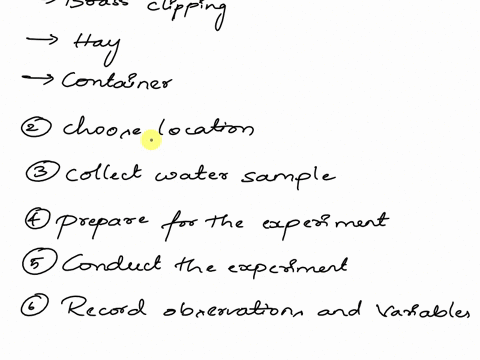 → Grass clipping
→ Hay
→ Container
② choose location
③ collect water sample
④ prepare for the experiment
⑤ Conduct the experiment
⑥ Record observations and variables